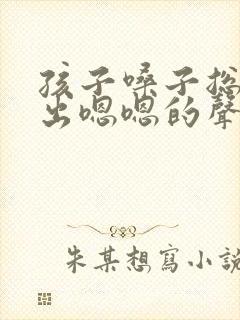 孩子嗓子总
出嗯嗯的聲
朱某想寫小說